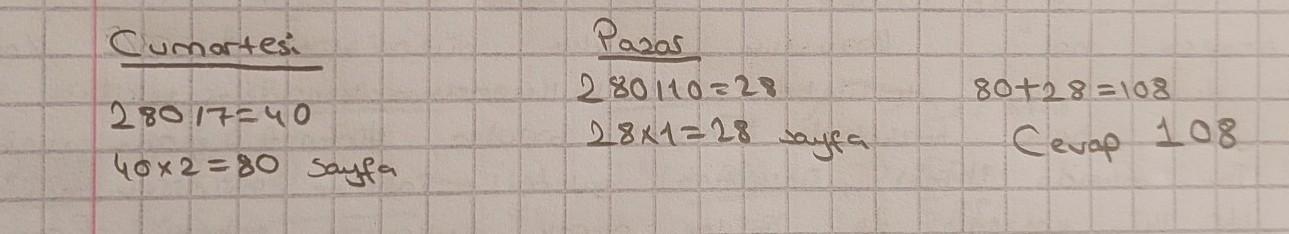 Cumartesi
280/7=40
40×2=80 sayfa
Pazar
280/10=28
28×1=28 sayfa
80+28=108
Cevap 108